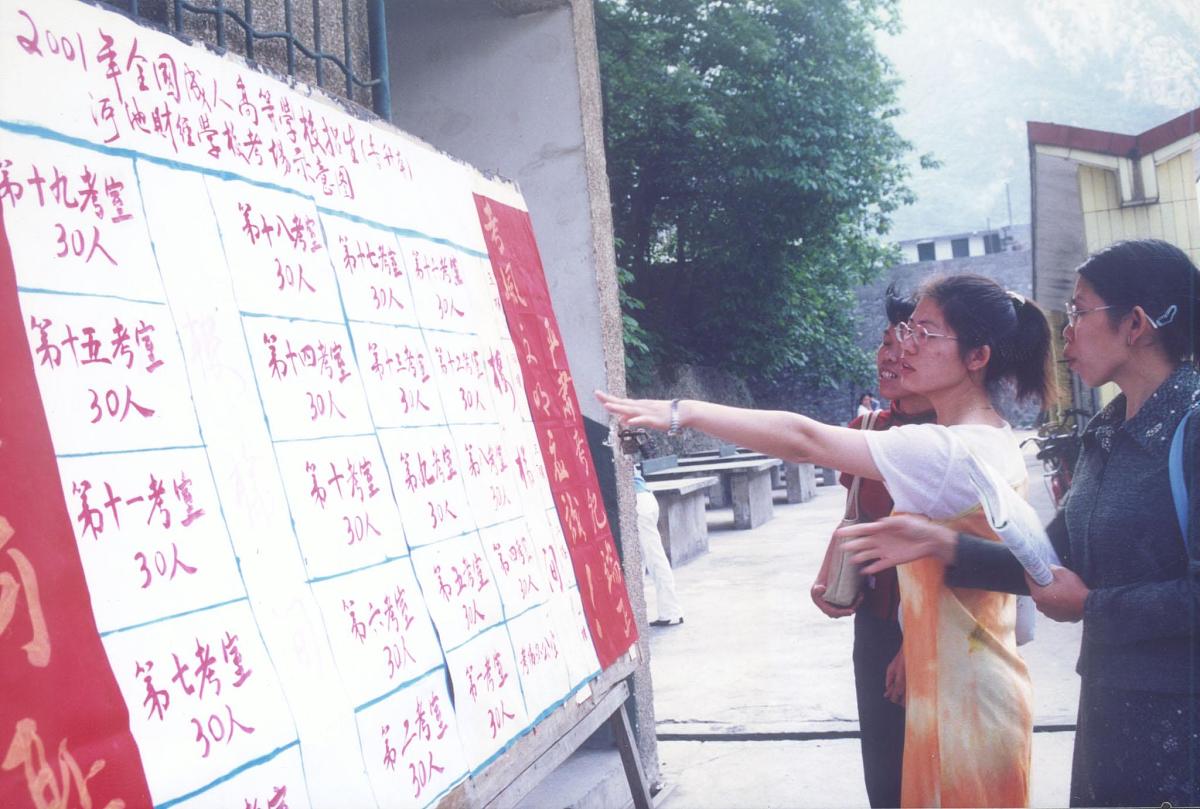 2001年全国成人高等学校招生(专升本)
河池财经学校考场示意图
第十九考室
30人
第十八考室
30人
第十七考室
30人
第十六考室
30人
第十五考室
30人
第十四考室
30人
第十三考室
30人
第十二考室
30人
第十一考室
30人
第十考室
30人
第九考室
30人
第八考室
30人
第七考室
30人
第六考室
30人
第五考室
30人
第四考室
30人
第二考室
30人
第一考室
30人
考室
楼
梯
间
楼
梯
间